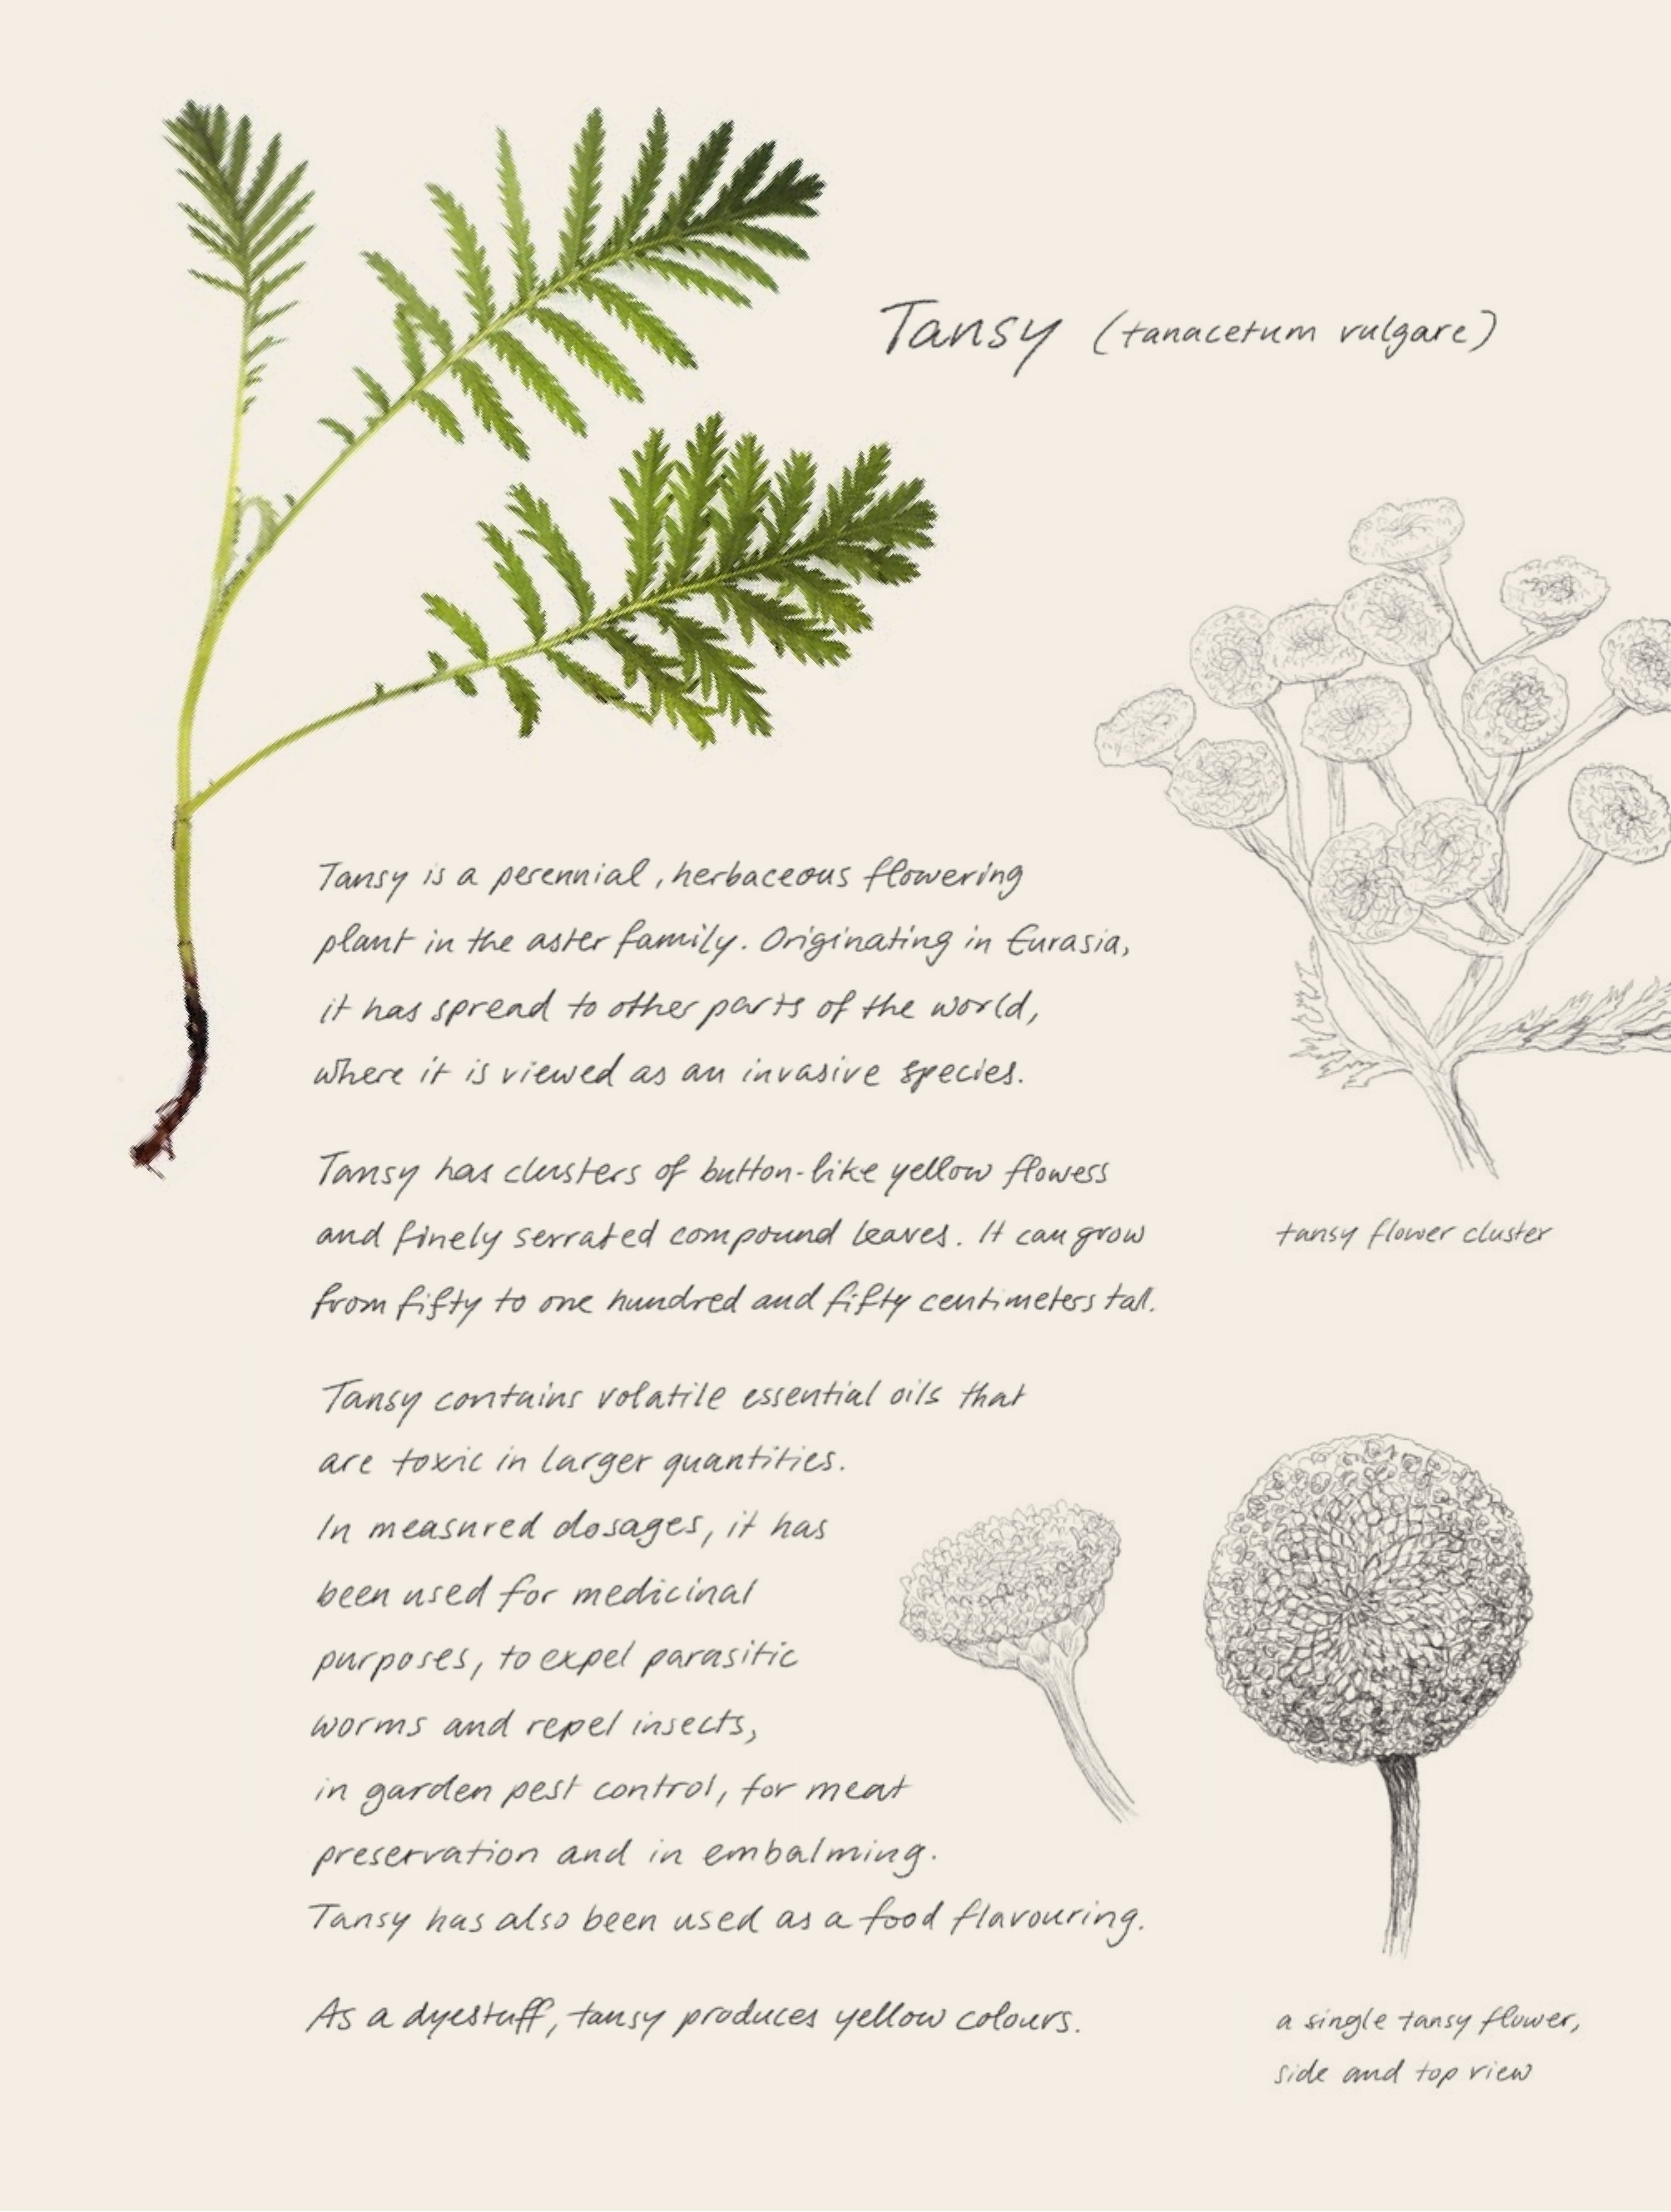 Tansy (tanacetum vulgare)
Tansy is a perennial, herbaceous flowering
plant in the aster family. Originating in Eurasia,
it has spread to other parts of the world,
where it is viewed as an invasive species.
Tansy has clusters of button-like yellow flowers
and finely serrated compound leaves. It can grow
from fifty to one hundred and fifty centimeters tall.
tansy flower cluster
Tansy contains volatile essential oils that
are toxic in larger quantities.
In measured dosages, it has
been used for medicinal
purposes, to expel parasitic
worms and repel insects,
in garden pest control, for meat
preservation and in embalming.
Tansy has also been used as a food flavouring.
As a dyestuff, tansy produces yellow colours.
a single tansy flower,
side and top view